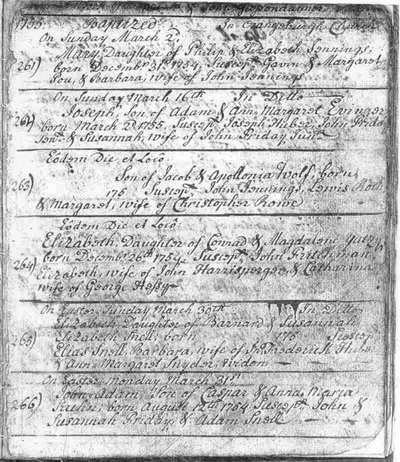 1755 Baptized In Orangeburgh Church
On Sunday March 2d
261) Mary, Daughter of Philip & Elizabeth Jennings,
born December 21st 1754, Suscept. Gavin & Margaret
Pou, & Barbara, wife of John Jennings
On Sunday March 16th In Ditto
262) Joseph, Son of Adam & Ann Margaret Evinger
born March 2d 1755, Suscept. Joseph John Friday
Senr & Susannah, wife of John Friday Junr
Eodem Die, et Loco
263) Son of Jacob & Apollonia Wolf, born
175 Suscept. John Jennings, Lewis Roth
& Margaret, wife of Christopher Rowe
Eodem Die et Loco
264) Elizabeth, Daughter of Conrad & Magdalene Yutzy,
born December 26th 1754, Suscept. John Fritchman
Elizabeth, wife of John Harrisperger, & Catharina
wife of George Hessy
On Easter Sunday March 30th In Ditto
265) Elizabeth Daughter of Barnard & Susannah
Elizabeth Snell, born 175
Elias Snell, Barbara, wife of Frederick
& Ann Margaret Snyder, Widow
On Easter Monday March 31st
266) John Adam, Son of Caspar & Anna Maria
born August 12th 1754 Suscept. John &
Susannah Friday & Adam Snell